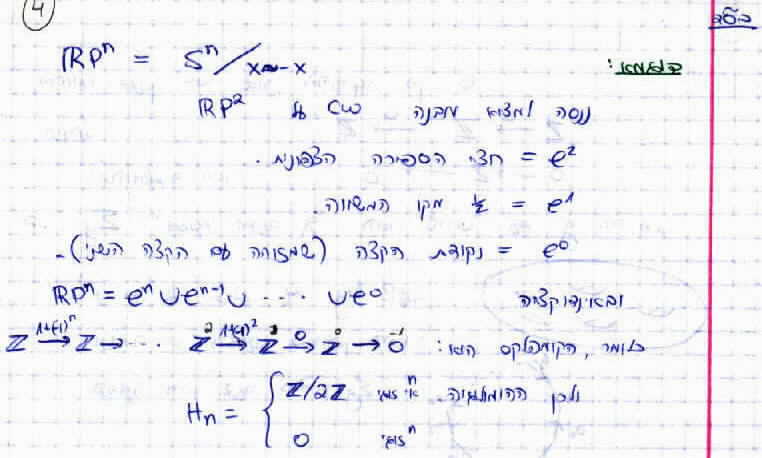 4
בס"ד
דוגמא:
RPⁿ = Sⁿ/x~-x
ננסה למצוא מבנה CW על RP²
e² = חצי הספירה הצפונית.
e¹ = ½ מקו המשווה.
e⁰ = נקודת הקצה (שמזוהה עם הקצה השני).
ובאינדוקציה RPⁿ = eⁿ ∪ eⁿ⁻¹ ∪ ... ∪ e⁰
כלומר, הקומפלקס הוא: Z →(1+(-1)ⁿ) Z → ... Z →(1+(-1)²) Z →(0) Z → 0
ולכן ההומולוגיה H_n = { Z/2Z n אי זוגי
0 n זוגי